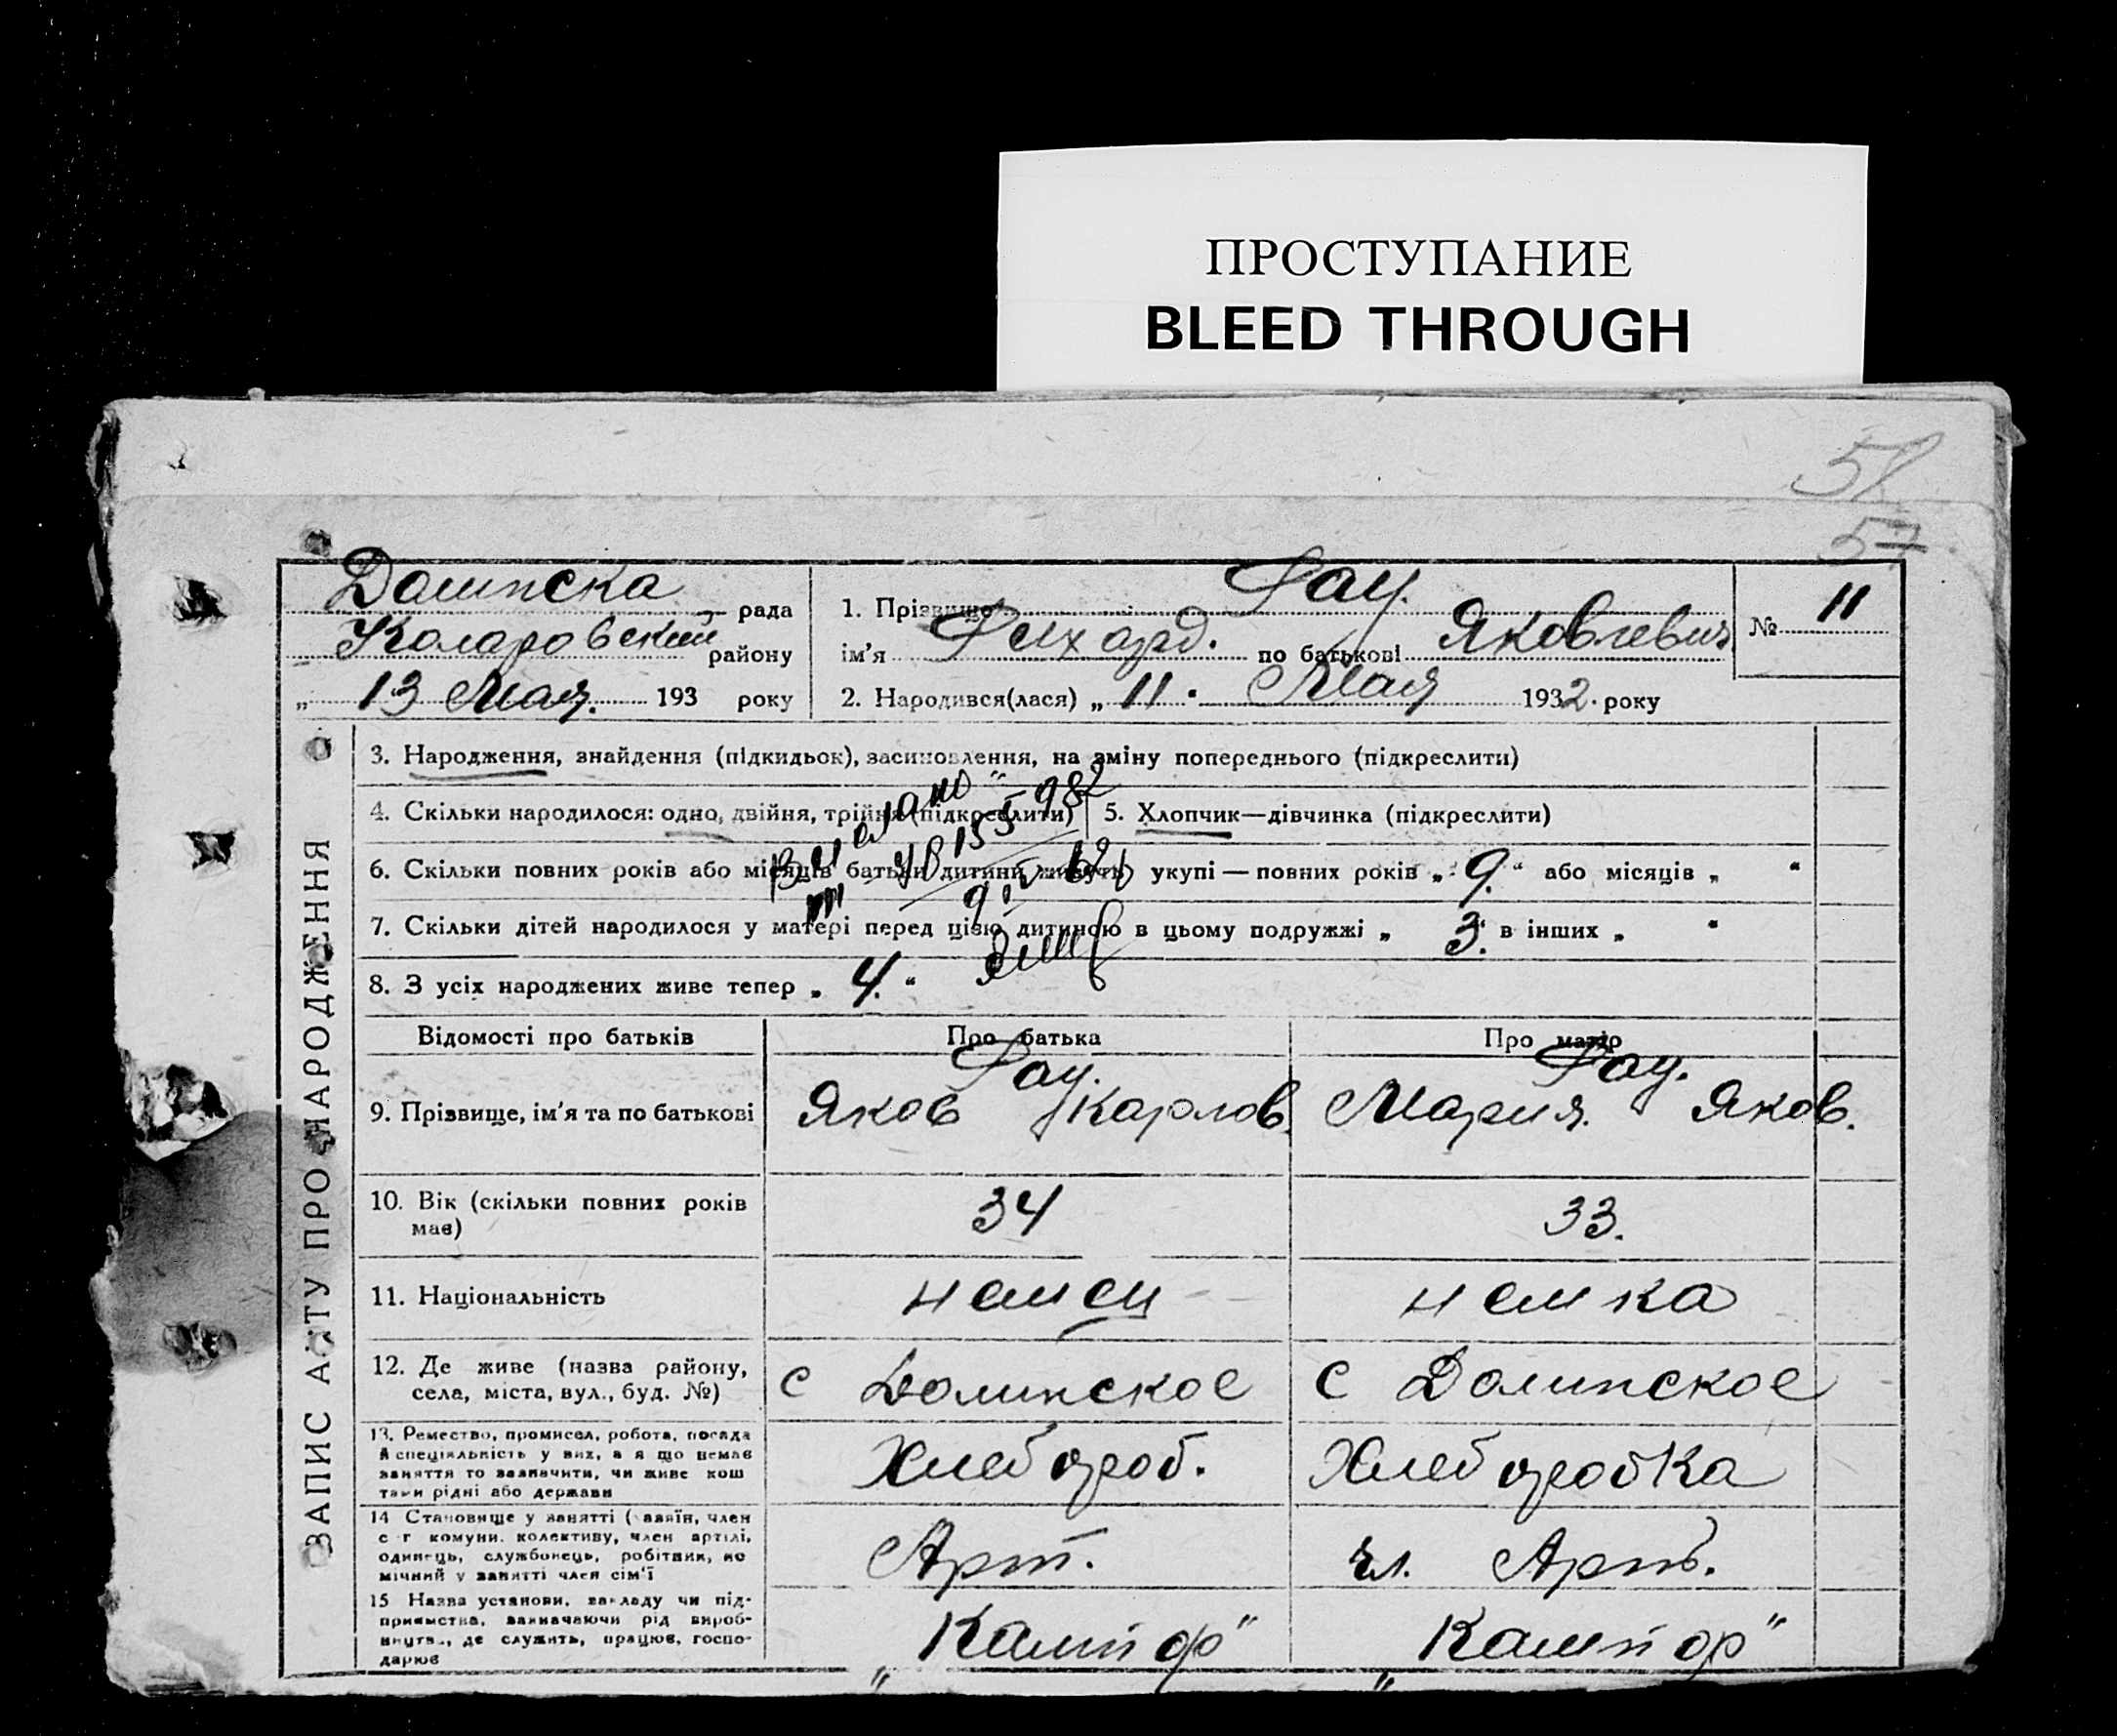 ПРОСТУПАНИЕ
BLEED THROUGH
51
57
Долинска рада
Коларовский району
„ 13 Мая. 193 року
1. Прізвище Рау.
ім'я Рихард. по батькові Яковлевич
2. Народився(лася) „ 11 " Мая 1932. року
№ 11
ЗАПИС АКТУ ПРО НАРОДЖЕННЯ
3. Народження, знайдення (підкидьок), засиновлення, на зміну попереднього (підкреслити)
4. Скільки народилося: одно, двійня, трійня (підкреслити) 5. Хлопчик—дівчинка (підкреслити)
6. Скільки повних років або місяців батьки дитини живуть укупі — повних років „ 9. " або місяців „ "
7. Скільки дітей народилося у матері перед цією дитиною в цьому подружжі „ 3. " в інших „ "
8. З усіх народжених живе тепер „ 4. "
Відомості про батьків Про батька Про матір
9. Прізвище, ім'я та по батькові Рау. Яков Карлов. Рау. Мария. Яков.
10. Вік (скільки повних років має) 34 33.
11. Національність немец немка
12. Де живе (назва району, села, міста, вул., буд. №) с Долинское с Долинское
13. Ремество, промисел, робота, посада й спеціяльність у них, а я що немає заняття то зазначити, чи живе кош тами рідні або держави Хлебороб. Хлеборобка
14 Становище у занятті (хазяїн, член с г комуни. колективу, член артілі, одинець, службовець, робітник, по мічний у занятті член сім'ї Арт. чл. Арть.
15 Назва установи, закладу чи підприємства, зазначаючи рід виробництва, де служить, працює, господарює „Кампор" „Кампор"